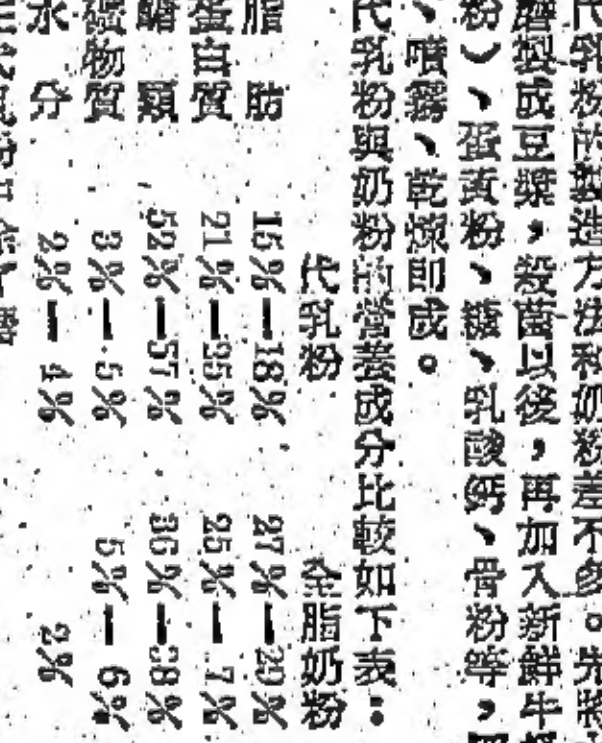 代乳粉的製造方法和奶粉差不多。先將
磨製成豆漿,殺菌以後,再加入新鮮牛
粉)、蛋黃粉、糖、乳酸鈣、骨粉等,
、噴霧、乾燥即成。
代乳粉與奶粉的營養成分比較如下表:
代乳粉 全脂奶粉
脂肪 15%—18% 27%—29%
蛋白質 21%—25% 25%—7%
醣類 52%—57% 36%—38%
礦物質 3%—5% 5%—6%
水分 2%—4% 2%